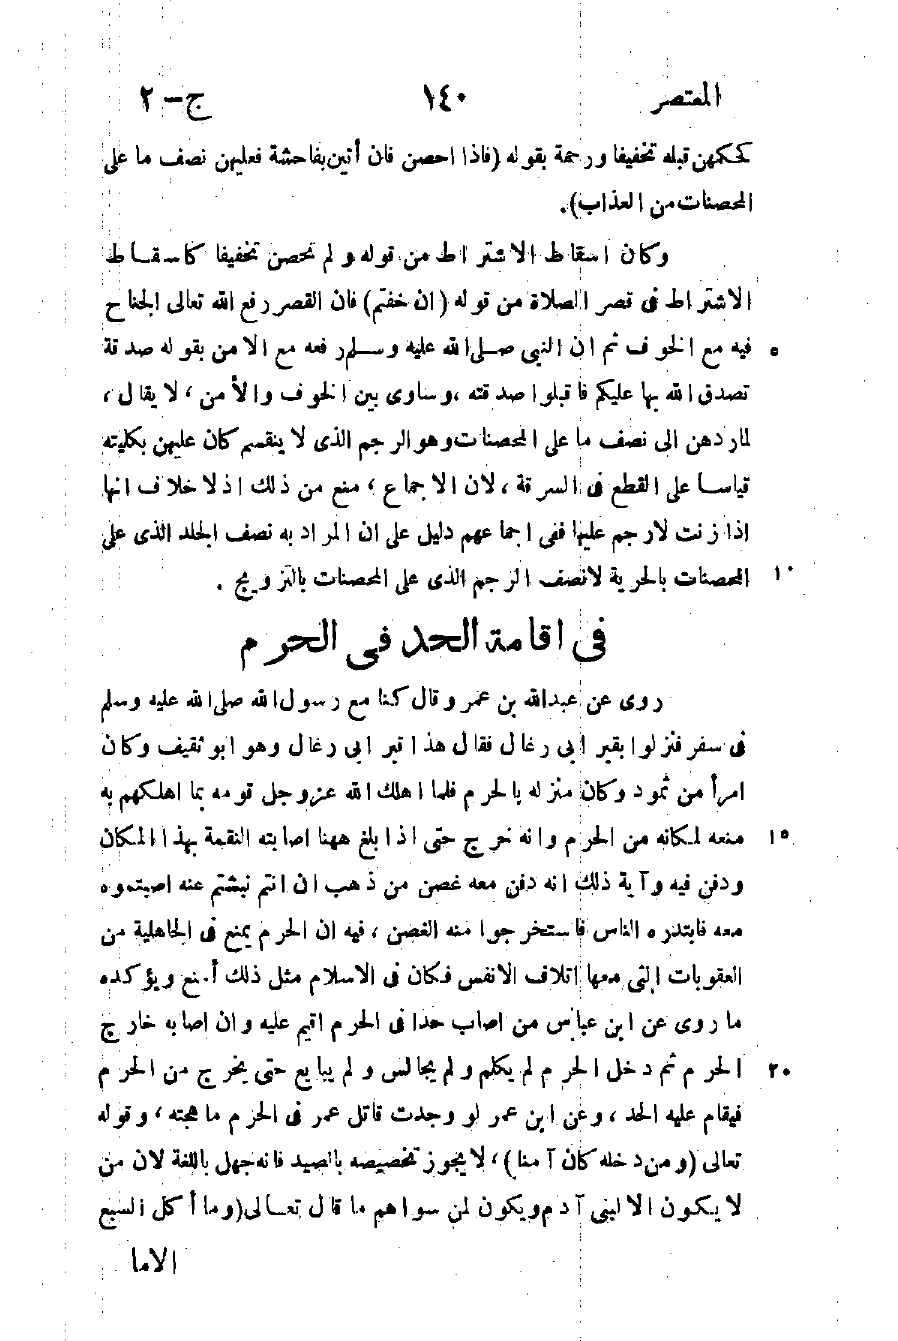 المعتصر ١٤٠ ج-٢
كحكمهن قبله تخفيفا ورحمة بقوله (فاذا احصن فان أتين بفاحشة فعليهن نصف ما على
المحصنات من العذاب).
وكان اسقاط الاشتراط من قوله ولم تحصن تخفيفا كاسقاط
الاشتراط فى قصر الصلاة من قوله (ان خفتم) فان القصر رفع الله تعالى الجناح
فيه مع الخوف ثم ان النبى صلى الله عليه وسلم رفعه مع الامن بقوله صدقة ٥
تصدق الله بها عليكم فاقبلوا صدقته ،وساوى بين الخوف والأمن ، لا يقال ،
لما ردهن الى نصف ما على المحصنات وهو الرجم الذى لا ينقسم كان عليهن بكليته
قياسا على القطع فى السرقة ، لان الاجماع ، منع من ذلك اذ لا خلاف انها
اذا زنت لارجم عليها ففى اجماعهم دليل على ان المراد به نصف الجلد الذى على
المحصنات بالحرية لا نصف الرجم الذى على المحصنات بالتزويج . ١٠
فى اقامة الحد فى الحرم
روى عن عبدالله بن عمر وقال كنا مع رسول الله صلى الله عليه وسلم
فى سفر فنزلوا بقبر ابى رغال فقال هذا قبر ابى رغال وهو ابو ثقيف وكان
امرأ من ثمود وكان منزله بالحرم فلما اهلك الله عزوجل قومه بما اهلكهم به
منعه لمكانه من الحرم وانه خرج حتى اذا بلغ ههنا اصابته النقمة بهذا المكان ١٥
ودفن فيه وآية ذلك انه دفن معه غصن من ذهب ان انتم نبشتم عنه اصبتموه
معه فابتدره الناس فاستخرجوا منه الغصن ، فيه ان الحرم يمنع فى الجاهلية من
العقوبات التى معها اتلاف الانفس فكان فى الاسلام مثل ذلك أمنع ويؤكده
ما روى عن ابن عباس من اصاب حدا فى الحرم اقيم عليه وان اصابه خارج
الحرم ثم دخل الحرم لم يكلم ولم يجالس ولم يبايع حتى يخرج من الحرم ٢٠
فيقام عليه الحد ، وعن ابن عمر لو وجدت قاتل عمر فى الحرم ما هجته ، وقوله
تعالى (ومن دخله كان آمنا) ، لا يجوز تخصيصه بالصيد فانه جهل باللغة لان من
لا يكون الا لبنى آدم ويكون لمن سواهم ما قال تعالى (وما أكل السبع
الاما